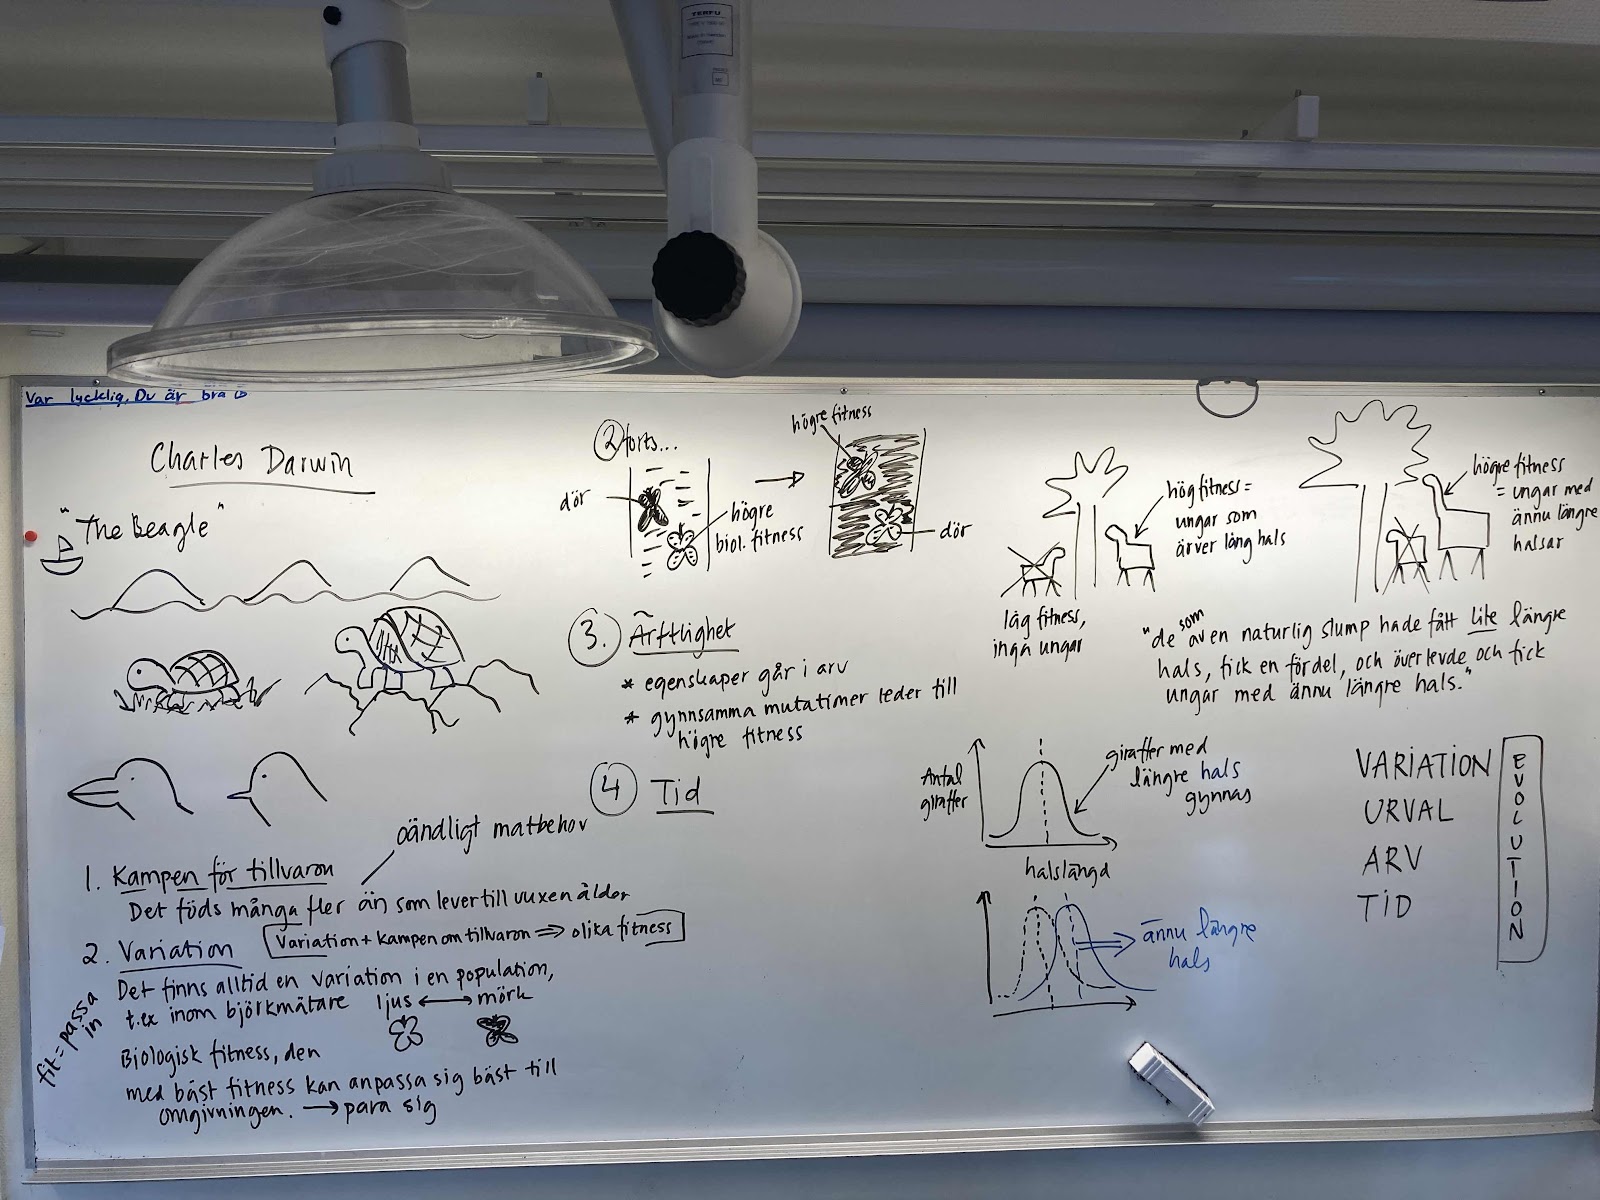 TERFU
Var lycklig, Du är bra
Charles Darwin
"The Beagle"
1. Kampen för tillvaron
oändligt matbehov
Det föds många fler än som lever till vuxen ålder
2. Variation
Variation + kampen om tillvaron ⇒ olika fitness
Det finns alltid en variation i en population,
t.ex inom björkmätare
ljus ↔ mörk
fit = passa
in
Biologisk fitness, den
med bäst fitness kan anpassa sig bäst till
omgivningen. → para sig
2 forts...
dör
högre
biol. fitness
→
högre fitness
dör
3. Ärftlighet
* egenskaper går i arv
* gynnsamma mutationer leder till
högre fitness
4 Tid
låg fitness,
inga ungar
hög fitness =
ungar som
ärver lång hals
högre fitness
= ungar med
ännu längre
halsar
"de som av en naturlig slump hade fått lite längre
hals, fick en fördel, och överlevde och fick
ungar med ännu längre hals."
Antal
giraffer
halslängd
giraffer med
längre hals
gynnas
ännu längre
hals
VARIATION
URVAL
ARV
TID
EVOLUTION